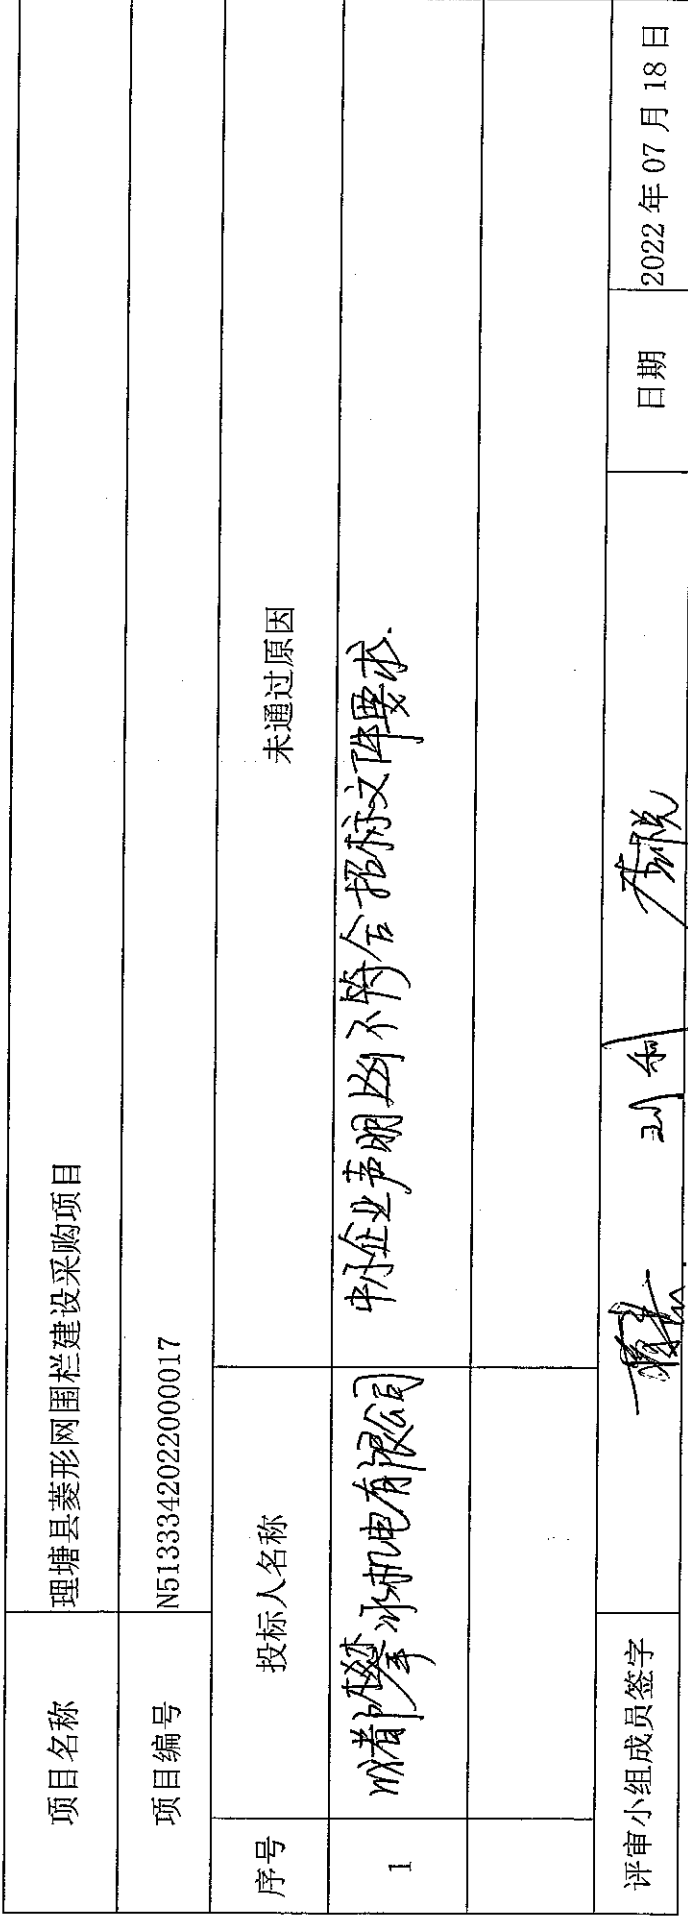 项目名称 理塘县菱形网围栏建设采购项目
项目编号 N5133342022000017
序号 投标人名称 未通过原因
1 成都 机电有限公司 中小企业声明 不符合招标文件要求.
评审小组成员签字 日期 2022年07月18日